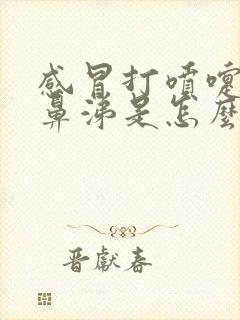 感冒打喷嚏
鼻涕是怎麼
晋獻春